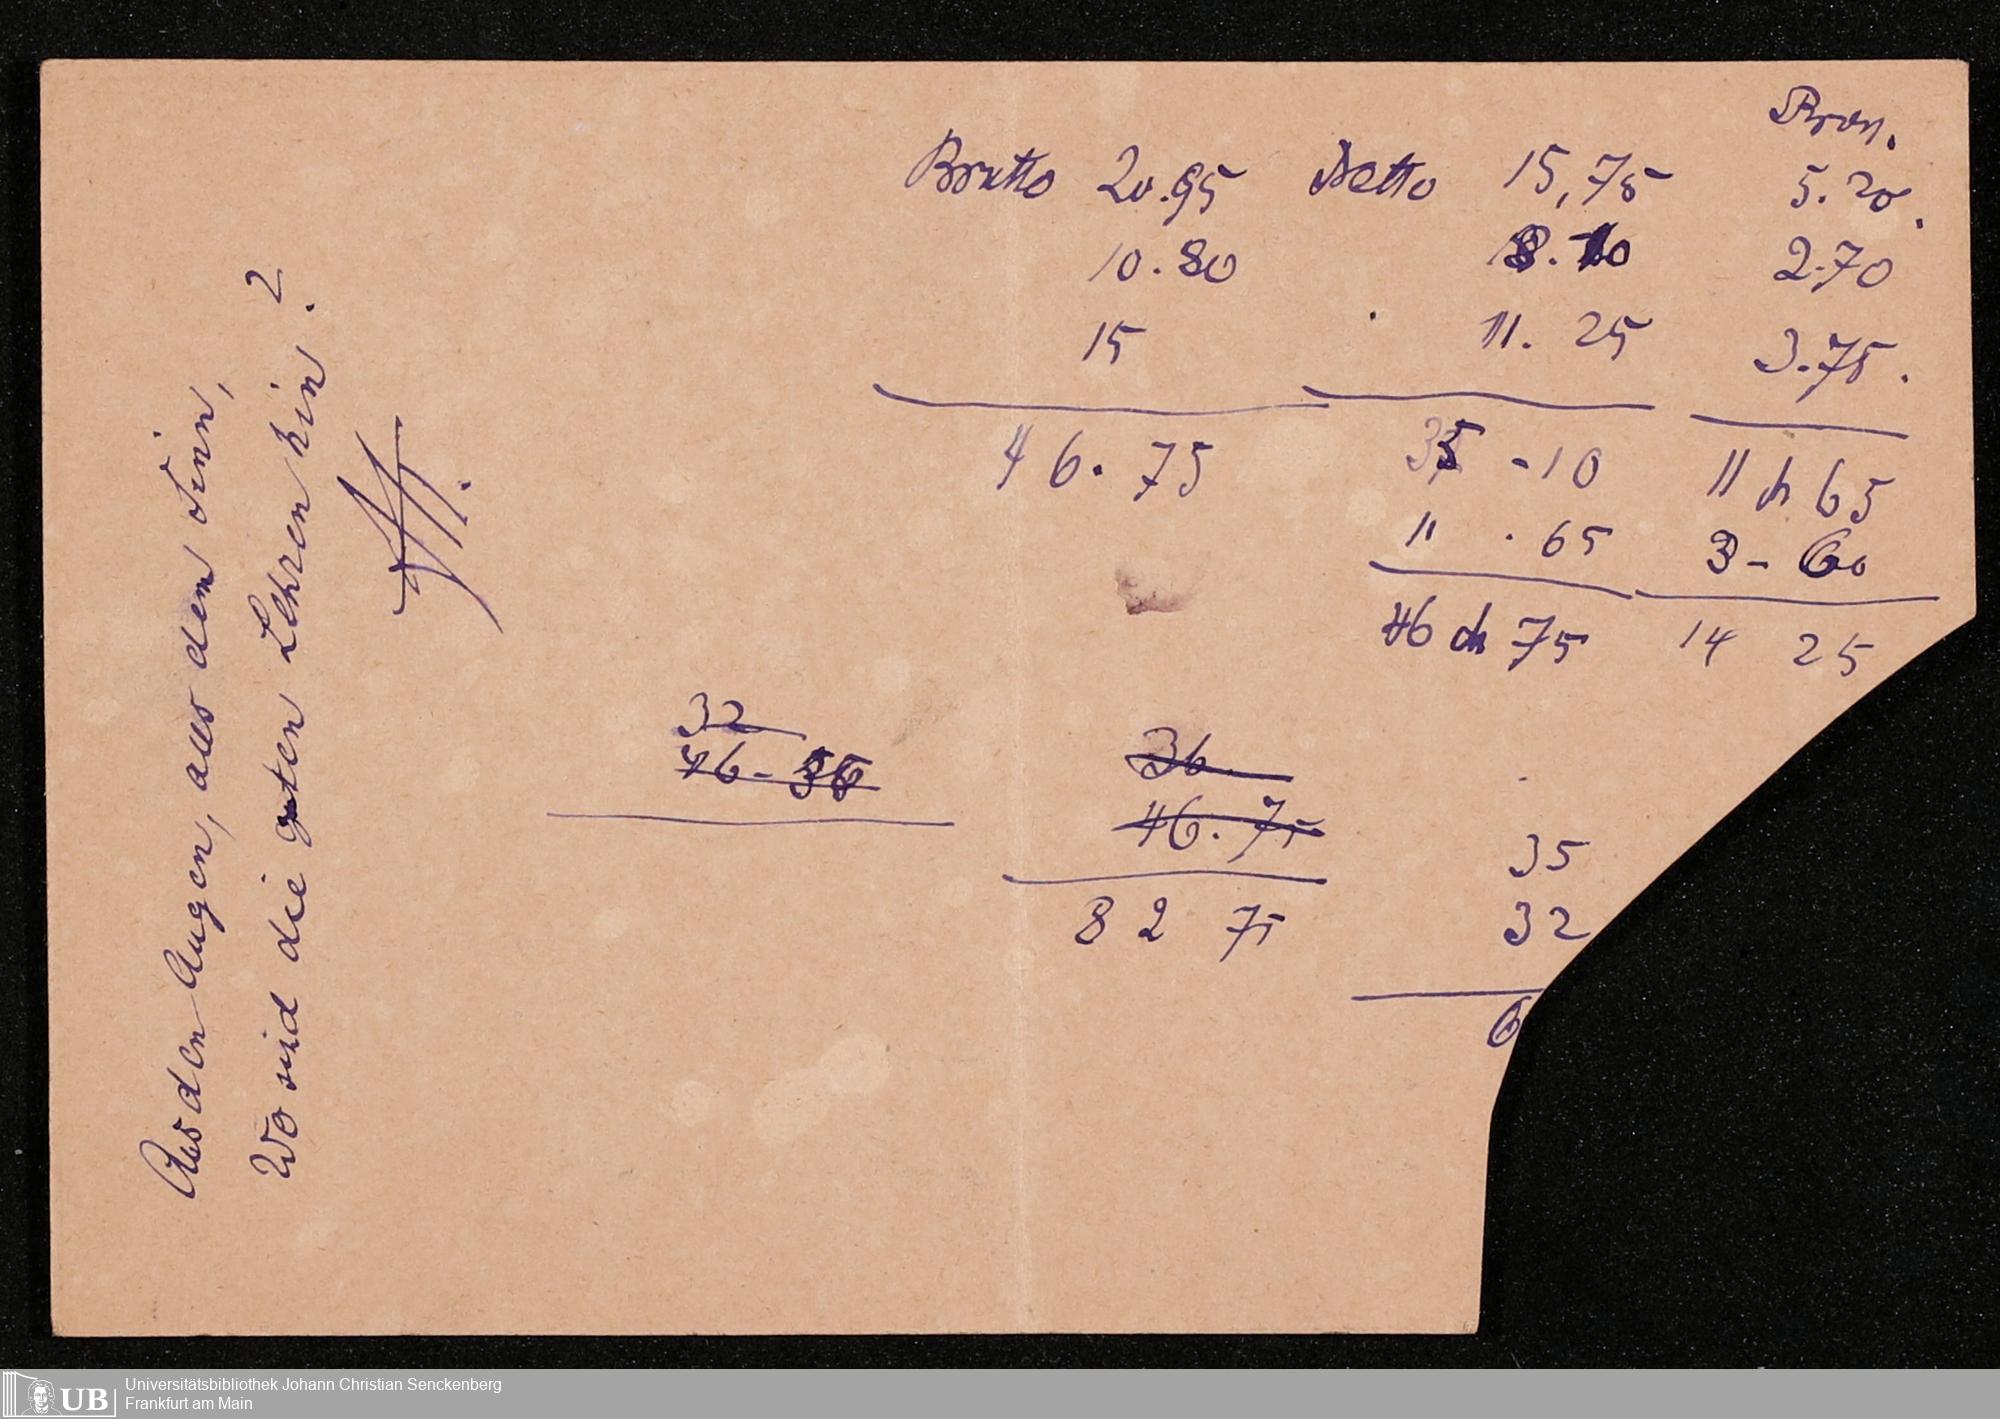 Aus den Augen, aus dem Sinn,
Wo sind die guten Lehren hin?
Prov.
Brutto 20.95 Netto 15,75 5.20.
10.80 8.10 2.70
15 11.25 3.75.
46.75 35-10 11 65
11.65 3-60
46 75 14 25
32
46-
36
46.75
82 75
35
32
6
Universitätsbibliothek Johann Christian Senckenberg
Frankfurt am Main
UB